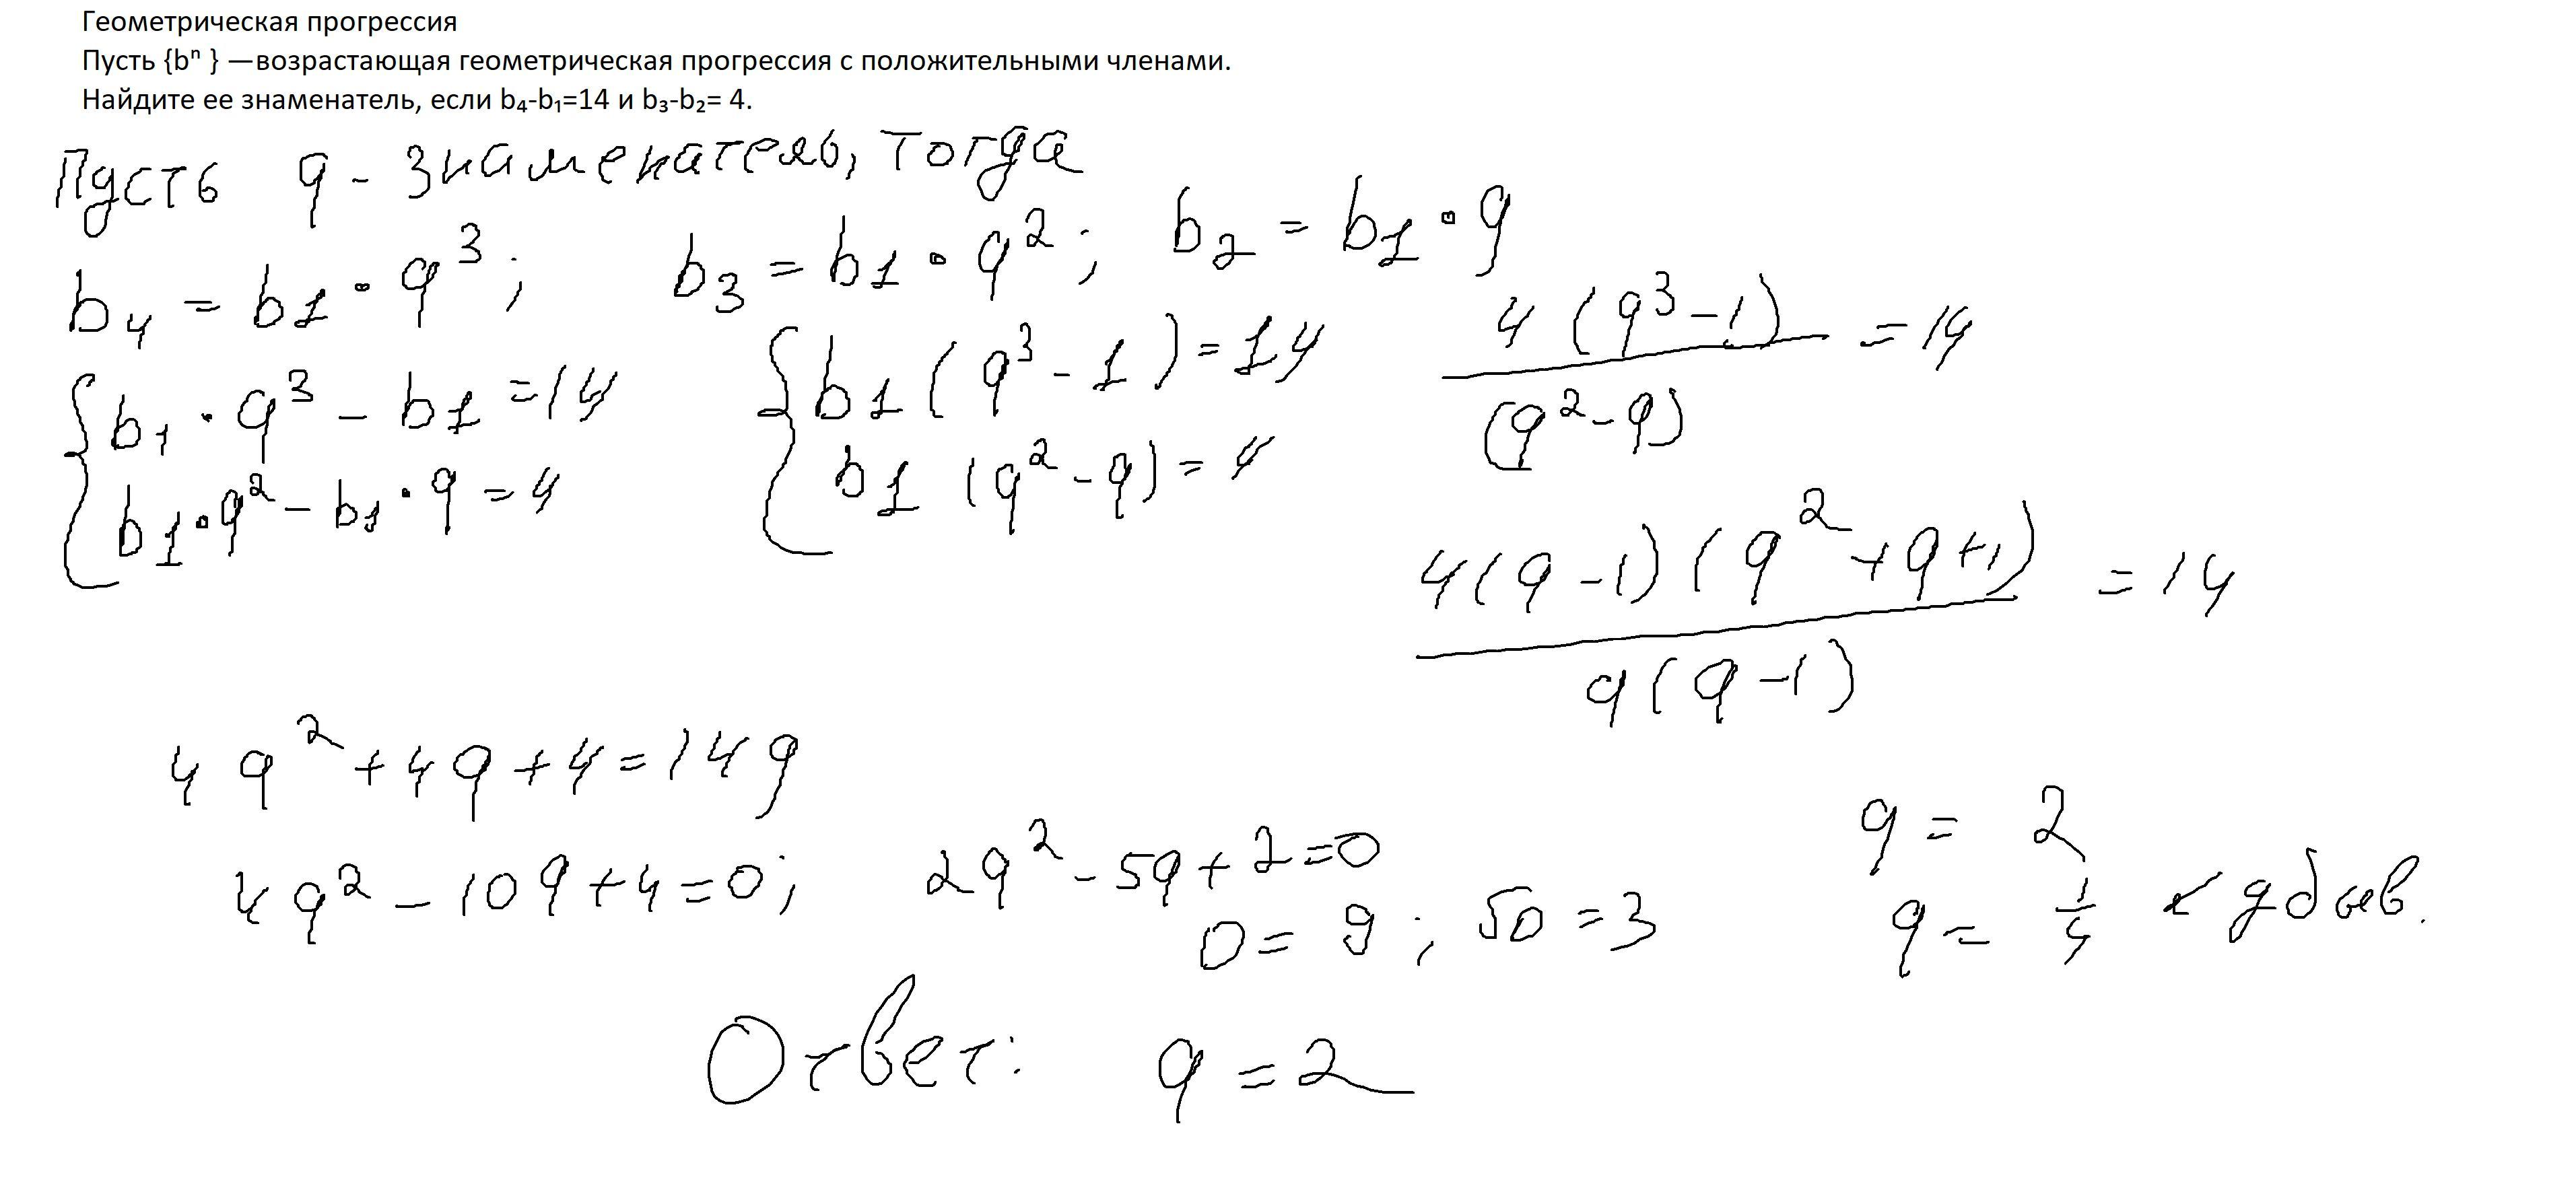 Геометрическая прогрессия
Пусть {bⁿ } —возрастающая геометрическая прогрессия с положительными членами.
Найдите ее знаменатель, если b₄-b₁=14 и b₃-b₂= 4.
Пусть q - знаменатель, тогда
b₄ = b1 · q³; b₃ = b1 · q²; b₂ = b1 · q
{ b₁ · q³ - b1 = 14
b1 · q² - b₁ · q = 4
{ b1 (q³ - 1) = 14
b1 (q² - q) = 4
4 (q³ - 1) / (q² - q) = 14
4(q - 1)(q² + q + 1) / q(q - 1) = 14
4q² + 4q + 4 = 14q
4q² - 10q + 4 = 0; 2q² - 5q + 2 = 0
D = 9; √D = 3
q = 2
q = 1/4 < убыв.
Ответ: q = 2